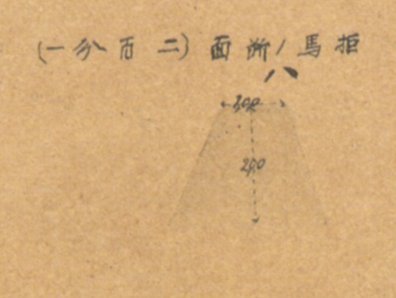 拒馬ノ断面(二百分一)
八
300
200